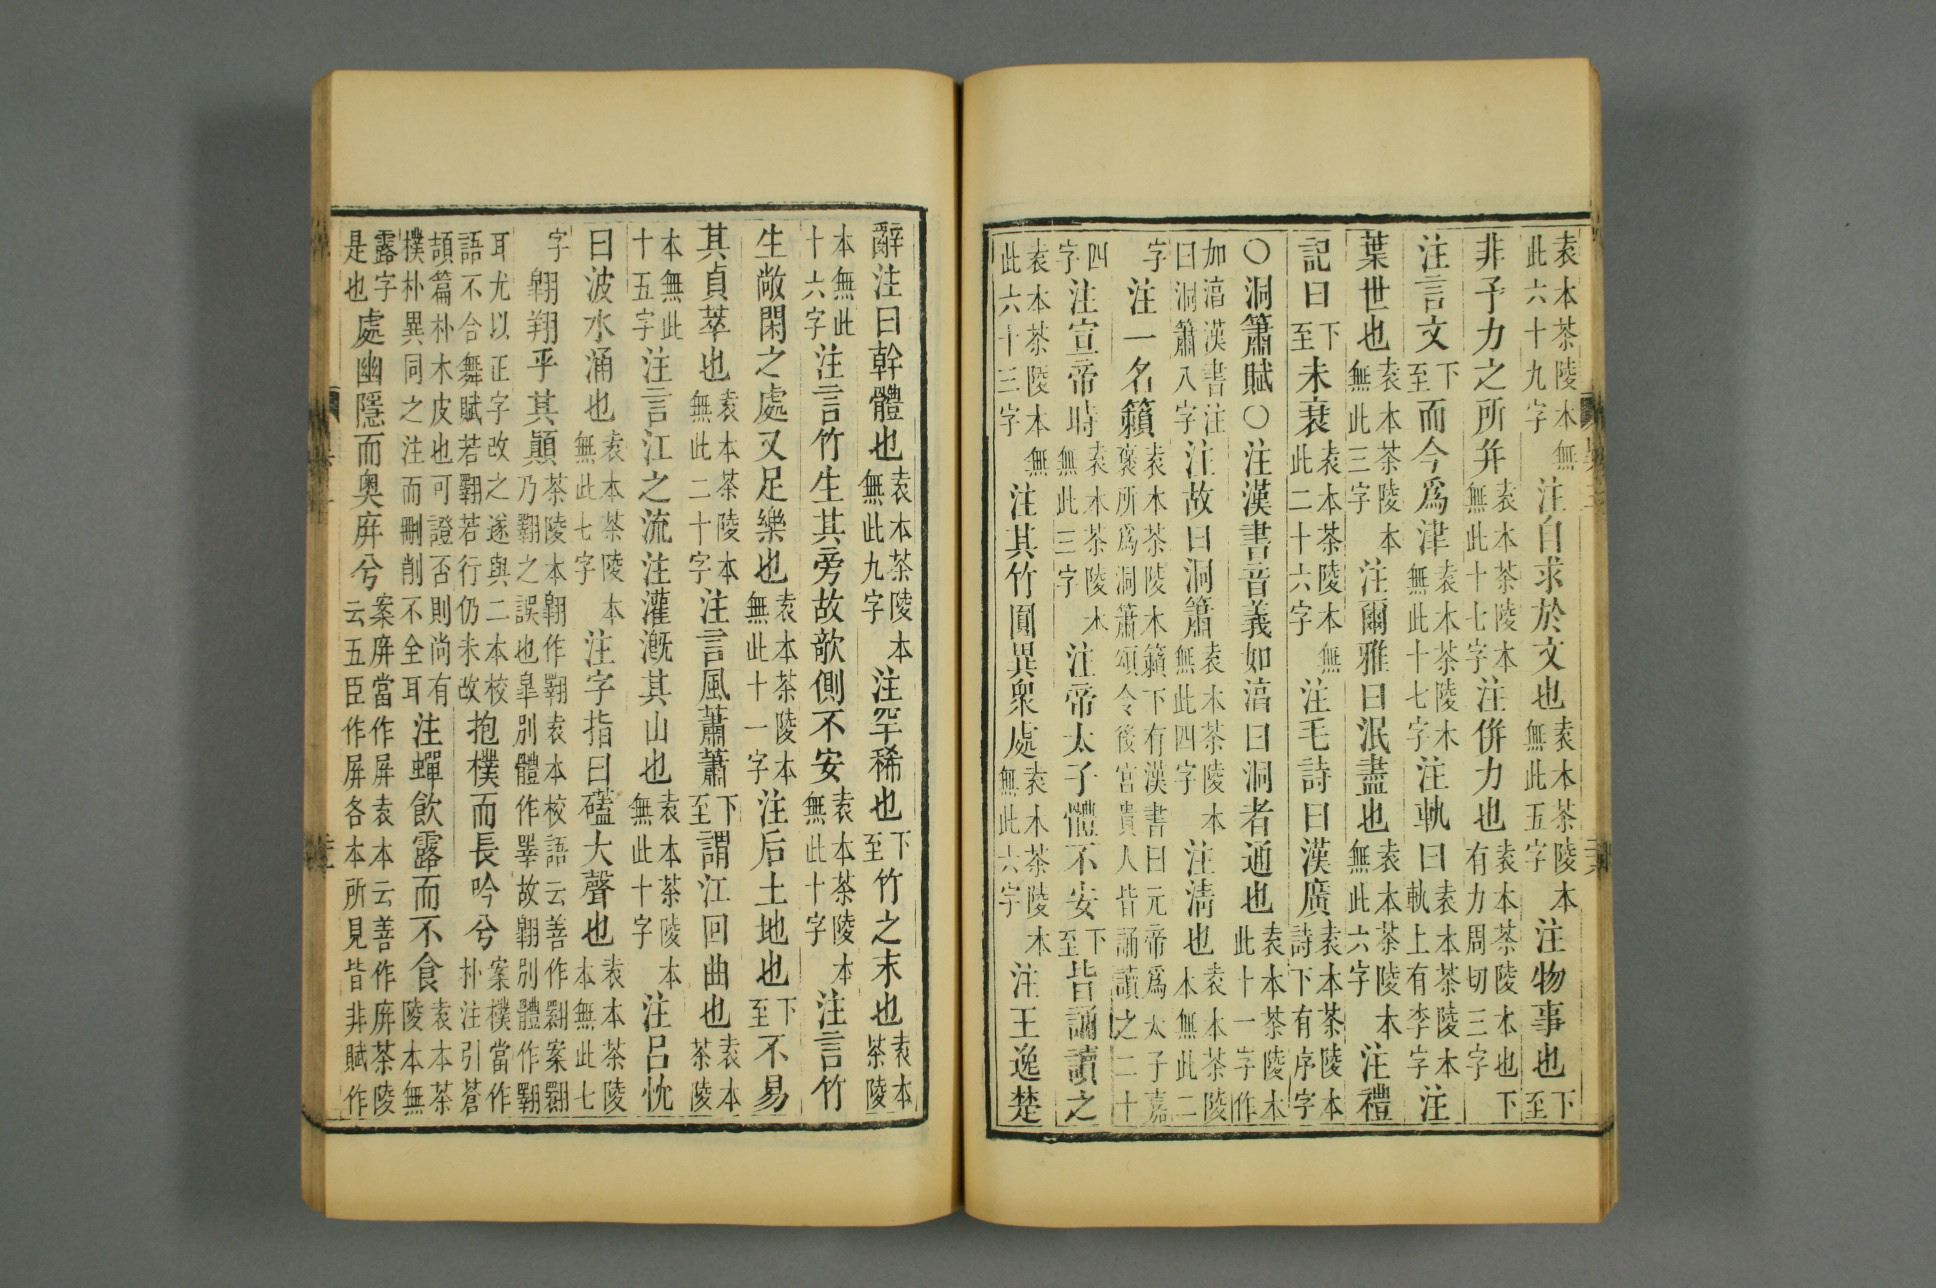 袁本茶陵本無此六十九字注自求於文也袁本茶陵本無此五字注物事也下至
非予力之所并袁本茶陵本無此十七字注併力也袁本茶陵本也下有力周切三字
注言文下至而今爲津袁本茶陵本無此十七字注軌曰袁本茶陵本軌上有李字注
葉世也袁本茶陵本無此三字注爾雅曰泯盡也袁本茶陵本無此六字注禮
記曰下至未衰袁本茶陵本無此二十六字注毛詩曰漢廣袁本茶陵本詩下有序字
○洞簫賦○注漢書音義如湻曰洞者通也袁本茶陵本此十一字作
加湻漢書注曰洞簫入字注故曰洞簫袁本茶陵本無此四字注淸也袁本茶陵本無此二
字注一名籟袁本茶陵本籟下有漢書曰元帝爲太子嘉褒所爲洞簫頌令後宮貴人皆誦讀之二十
四字注宣帝時袁本茶陵本無此三字注帝太子體不安下至皆誦讀之
袁本茶陵本無此六十三字注其竹圓異衆處袁本茶陵本無此六字注王逸楚
辭注曰幹體也袁本茶陵本無此九字注罕稀也下至竹之末也袁本茶陵
本無此十六字注言竹生其旁故欹側不安袁本茶陵本無此十字注言竹
生敞閑之處又足樂也袁本茶陵本無此十一字注后土地也下至不易
其貞萃也袁本茶陵本無此二十字注言風蕭蕭下至謂江回曲也袁本茶陵
本無此十五字注言江之流注灌漑其山也袁本茶陵本無此十字注呂忱
曰波水涌也袁本茶陵本無此七字注字指曰礚大聲也袁本茶陵本無此七
字翱翔乎其顚茶陵本翱作翺袁本校語云善作翾案翾乃翺之誤也皐別體作睪故翱別體作翺
耳尤以正字改之遂與二本校語不合舞賦若翺若行仍未改抱樸而長吟兮案樸當作朴注引蒼
頡篇朴木皮也可證否則尚有樸朴異同之注而刪削不全耳注蟬飲露而不食袁本茶陵本無
露字是也處幽隱而奥庰兮案庰當作屏袁本云善作庰茶陵云五臣作屏各本所見皆非賦作